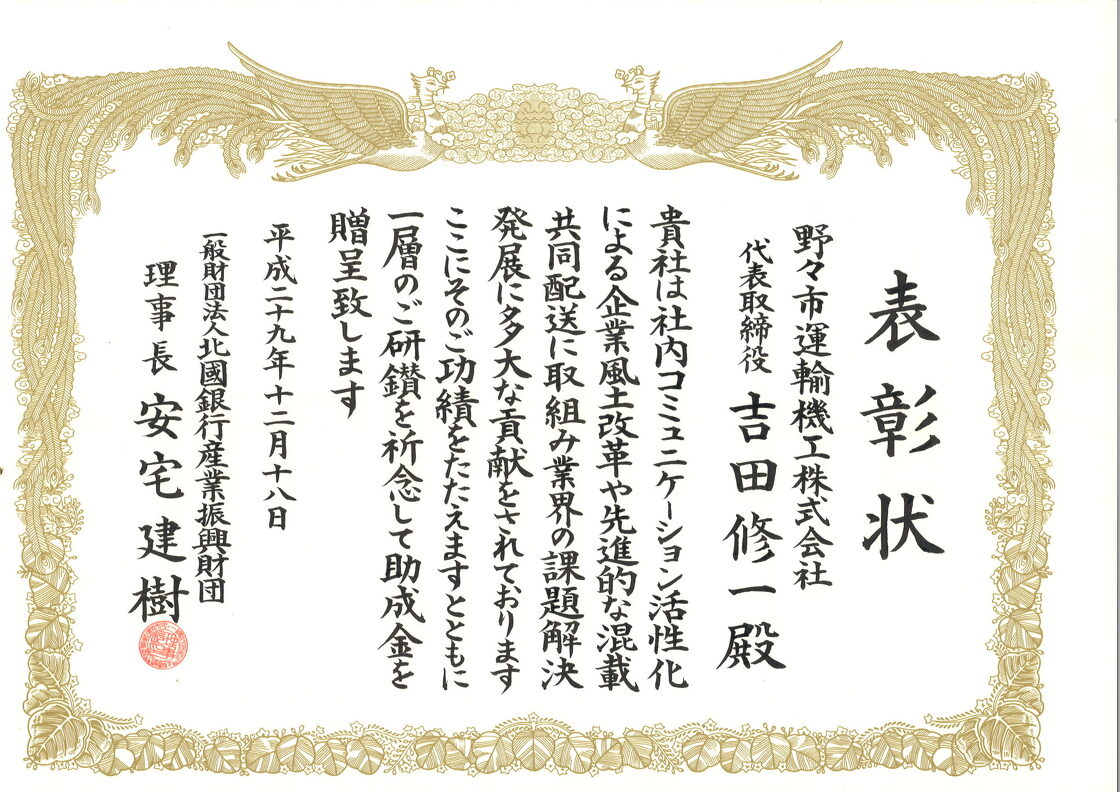 表彰状
野々市運輸機工株式会社
代表取締役 吉田修一殿
貴社は社内コミュニケーション活性化
による企業風土改革や先進的な混載
共同配送に取組み業界の課題解決
発展に多大な貢献をされております
ここにそのご功績をたたえますとともに
一層のご研鑚を祈念して助成金を
贈呈致します
平成二十九年十二月十八日
一般財団法人北國銀行産業振興財団
理事長 安宅建樹